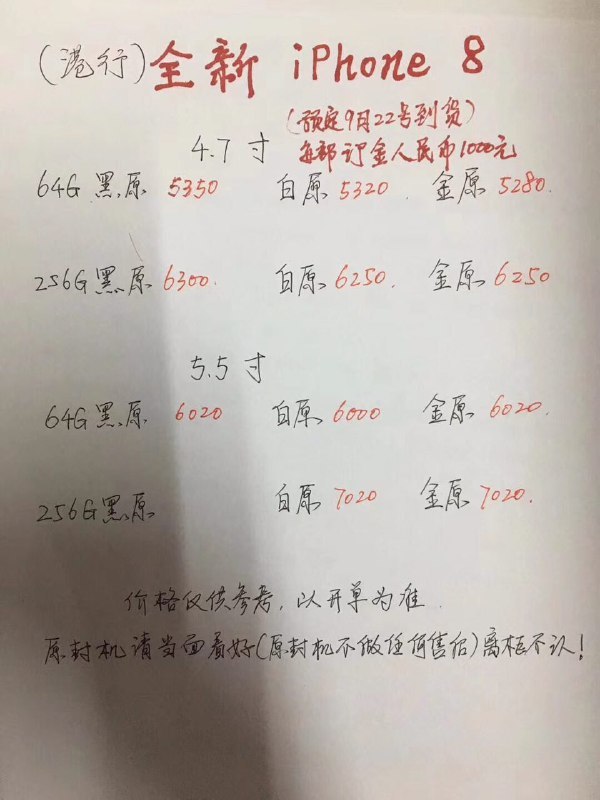 (港行)全新 iPhone 8
(预定9月22号到货)
4.7寸 每部订金人民币1000元
64G黑原 5350 白原 5320 金原 5280
256G黑原 6300 白原 6250 金原 6250
5.5寸
64G黑原 6020 白原 6000 金原 6020
256G黑原 白原 7020 金原 7020
价格仅供参考,以开单为准
原封机请当面看好(原封机不做任何售后)离柜不认!